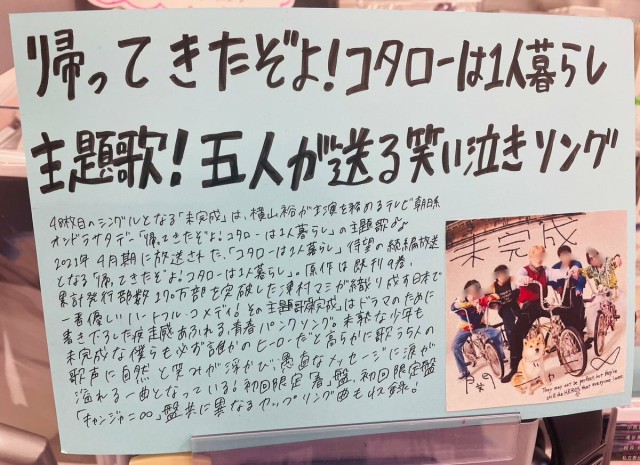 帰ってきたぞよ!コタローは1人暮らし
主題歌!五人が送る笑い泣きソング
48枚目のシングルとなる「未完成」は、横山裕が主演を務めるテレビ朝日系
オシドラサタデー「帰ってきたぞよ!コタローは1人暮らし」の主題歌だよ
2021年4月期に放送された、「コタローは1人暮らし」待望の続編放送
となる「帰ってきたぞよ!コタローは1人暮らし」。原作は既刊9巻、
累計発行部数170万部を突破した津村マミが織り成す日本で
一番優しいハートフル・コメディ!その主題歌「未完成」はドラマのために
書き下ろした疾走感あふれる青春パンクソング。未熟な少年も
未完成な僕らも必ず誰かのヒーローだと高らかに歌う5人の
歌声に自然と笑みが浮かび、愚直なメッセージに涙が
溢れる一曲となっている!初回限定「春」盤、初回限定盤
「キャンジャニ∞」盤共に異なるカップリング曲も収録!
未完成
They may not be perfect but they're
still the HEROES that everyone loves